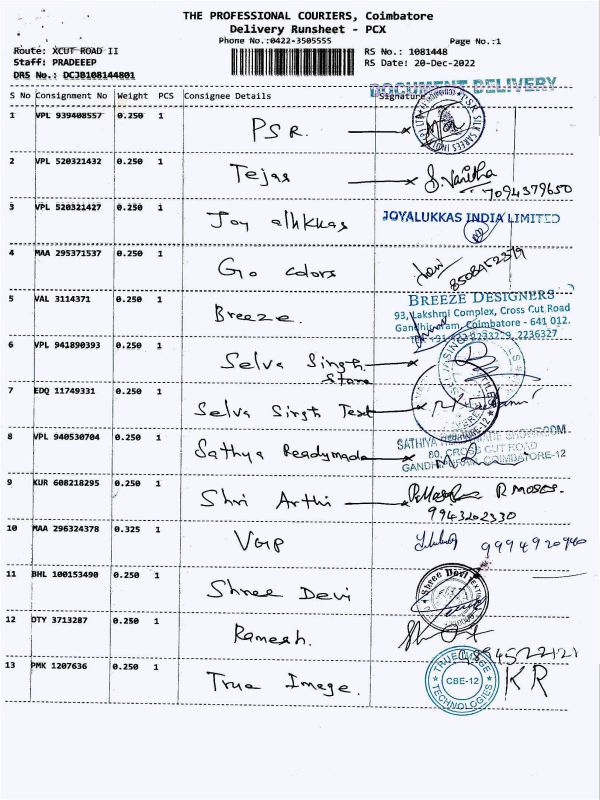 THE PROFESSIONAL COURIERS, Coimbatore
Delivery Runsheet - PCX
Phone No.:0422-3505555
Page No.:1
Route: XCUT ROAD II
RS No.: 1081448
Staff: PRADEEEP
RS Date: 20-Dec-2022
DRS No.: DCJB108144801
DOCUMENT DELIVERY
S No Consignment No Weight PCS Consignee Details Signature
1 VPL 939408557 0.250 1 PSR.
2 VPL 520321432 0.250 1 Tejas S. Vanitha
7094379650
3 VPL 520321427 0.250 1 Joy alukkas JOYALUKKAS INDIA LIMITED
4 MAA 295371537 0.250 1 Go Colors
5 VAL 3114371 0.250 1 Breeze. BREEZE DESIGNERS
93, Lakshmi Complex, Cross Cut Road
Gandhipuram, Coimbatore - 641 012.
2236327
6 VPL 941890393 0.250 1 Selva Singh
Store
7 EDQ 11749331 0.250 1 Selva Singh Text
8 VPL 940530704 0.250 1 Sathya Readymade SATHIYA READYMADE SHOWROOM
80, CROSS CUT ROAD
GANDHIPURAM, COIMBATORE-12
9 KUR 608218295 0.250 1 Shri Arthi R MOSES.
9943202330
10 MAA 296324378 0.325 1 VGP 9994920940
11 BHL 100153490 0.250 1 Shree Devi Shree Devi
12 OTY 3713287 0.250 1 Ramesh.
13 PMK 1207636 0.250 1 True Image. TRUE IMAGE
CBE-12
TECHNOLOGIES
KR